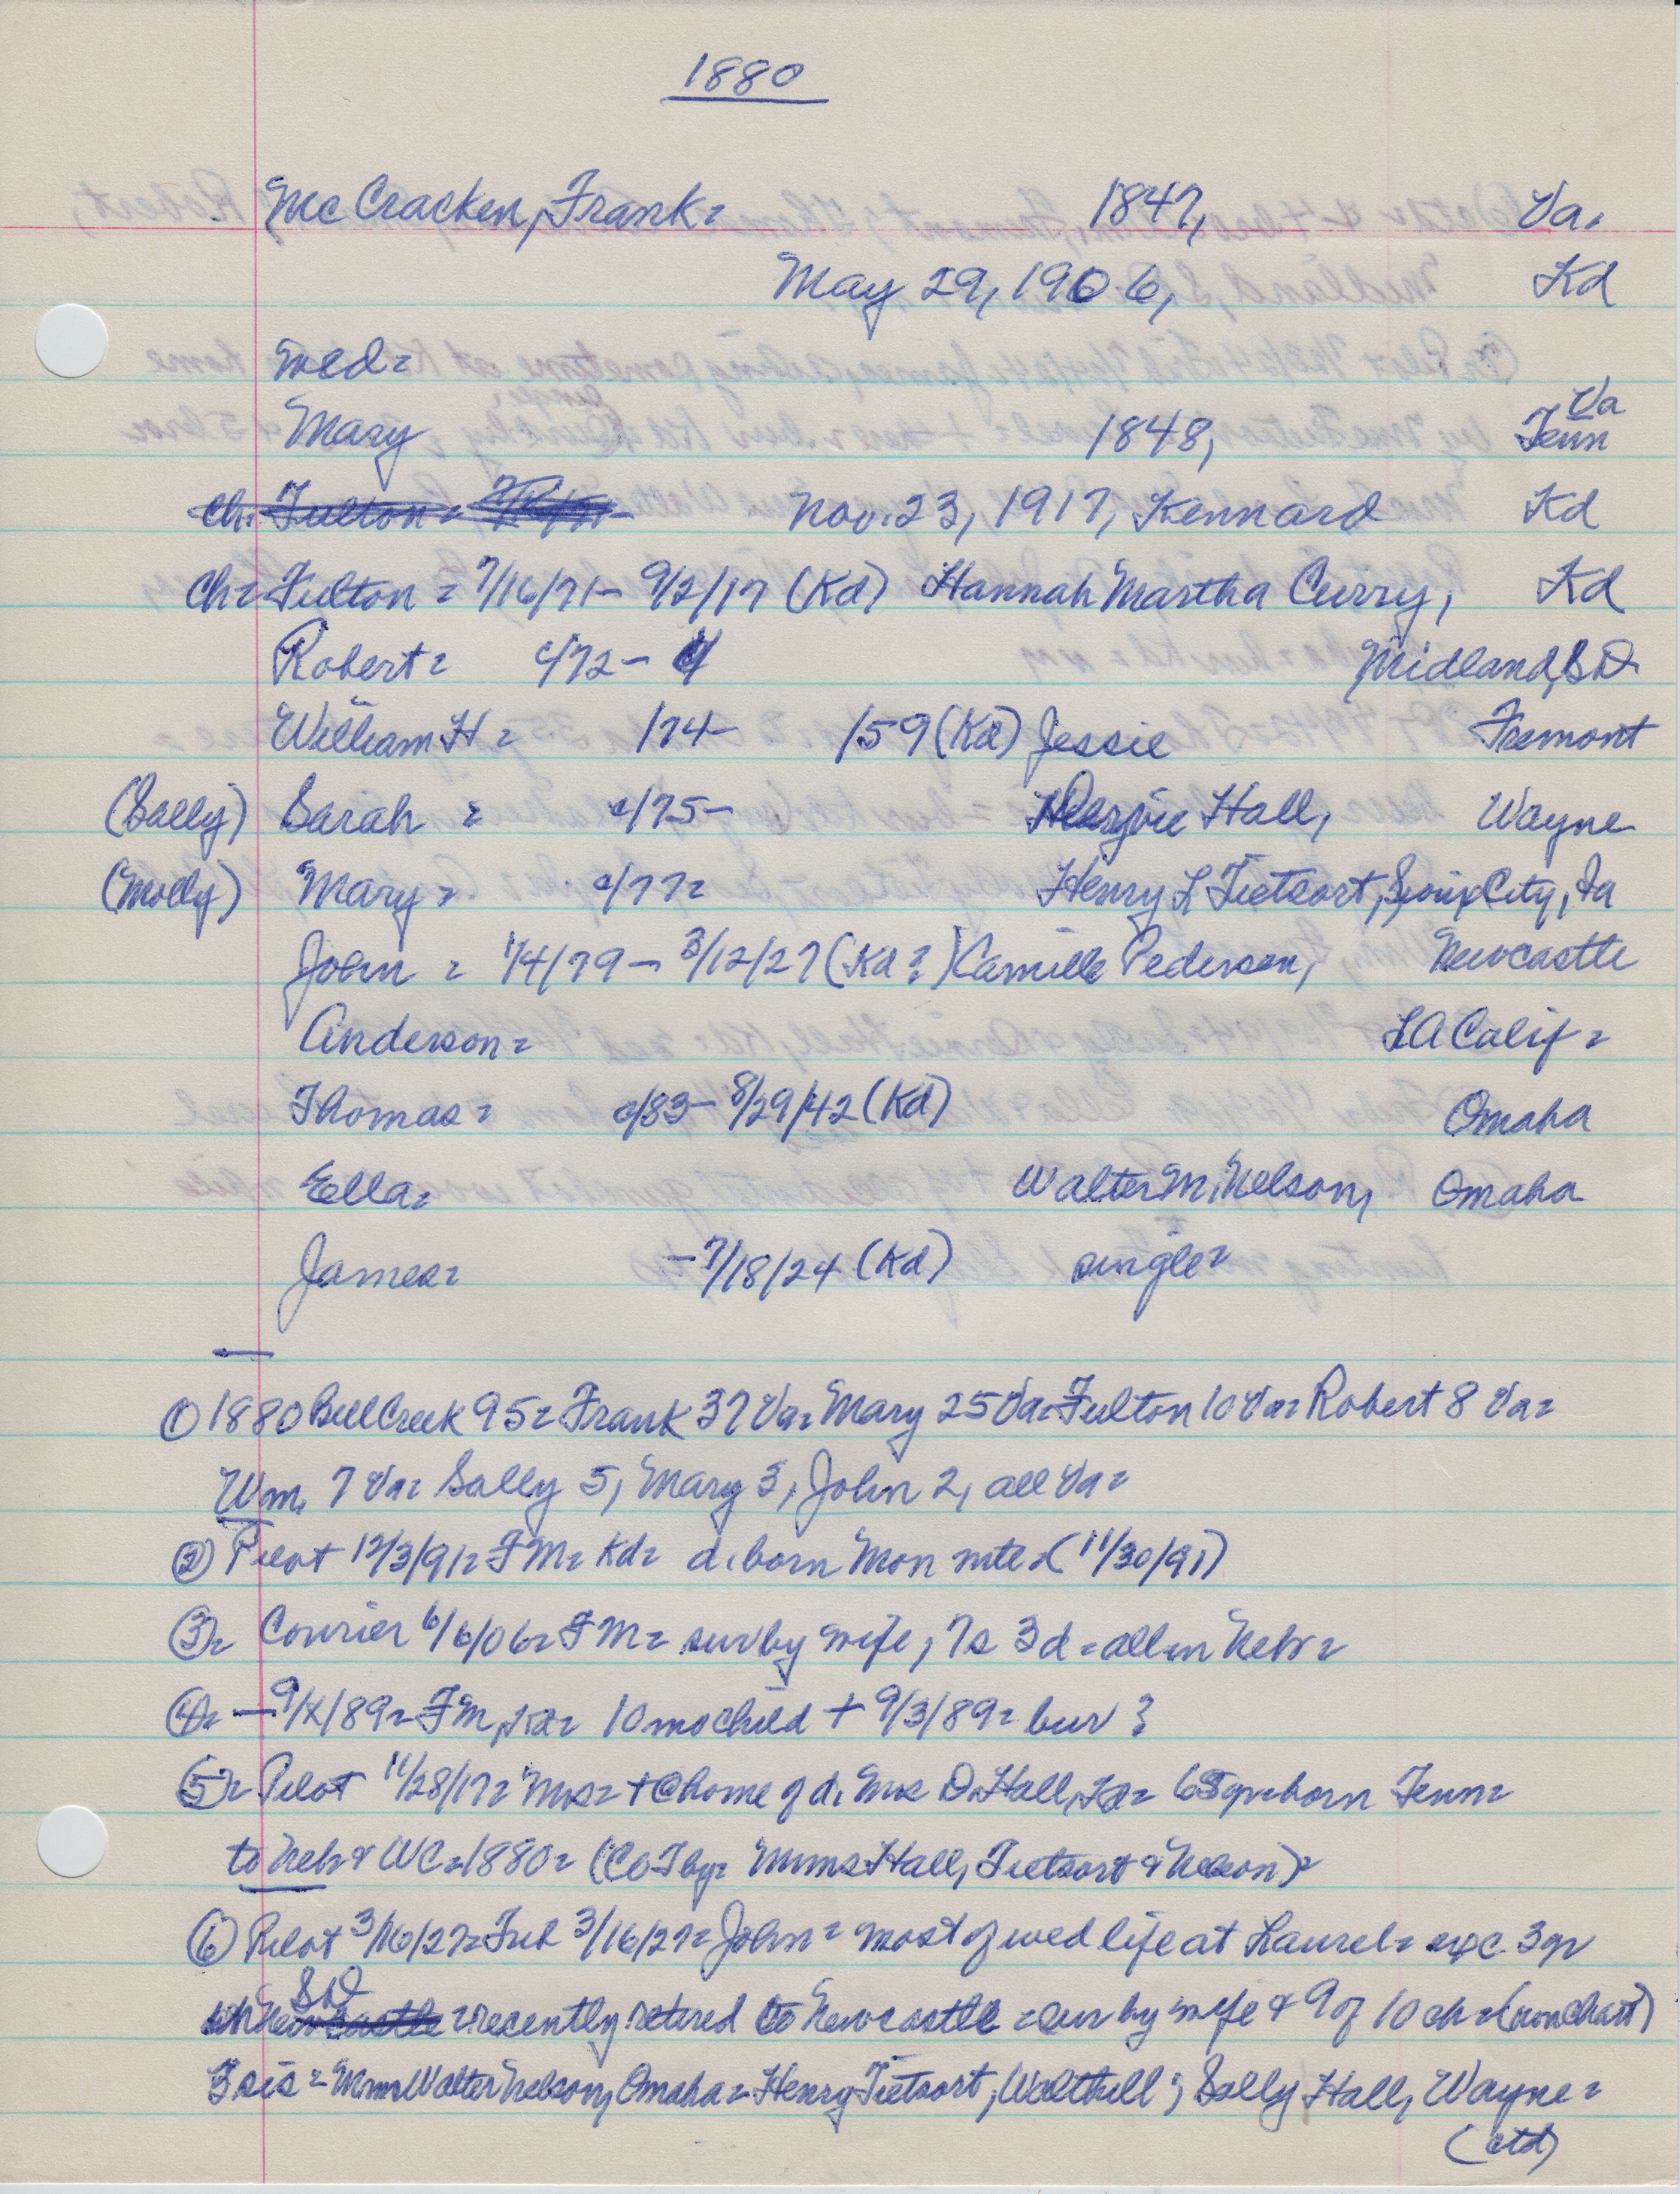 1880
McCracken, Frank= 1847, Va.
May 29, 1906, Kd
wed=
Va
Mary 1848, Tenn
ch: Fulton= Nov. 23, 1917, Kennard Kd
Ch= Fulton = 7/16/71- 9/2/17 (Kd) Hannah Martha Curry, Kd
Robert= c/72- Midland, SD
William H= /74- /59 (Kd) Jessie Fremont
(Sally) Sarah = c/75- Hall, Wayne
(Molly) Mary= c/77= Henry L Tietsort, Sioux City, Ia
John = 1/4/79 - 3/12/27 (Kd?) Camille Pedersen, Newcastle
Anderson= LA Calif=
Thomas= c/83- 8/29/42 (Kd) Omaha
Ella= Walter M. Nelson, Omaha
James= -7/18/24 (Kd) single=
① 1880 Bell Creek 95= Frank 37 Va= Mary 25 Va= Fulton 10 Va= Robert 8 Va=
Wm. 7 Va= Sally 5, Mary 3, John 2, all Va=
② Pilot 12/3/91= FM= Kd= d. born Mon nite=(11/30/91)
③= Courier 6/6/06= FM= sur by wife, 7s 3d=all in Nebr=
④= -9/X/89= FM, Kd= 10 mo child + 9/3/89= bur?
⑤= Pilot 11/28/17= Mrs= +@home of d. Mrs D. Hall, Kd= 68yr=born Tenn=
to Nebr & WC=1880= (CofT by= Mmes Hall, Tietsort & Nelson)=
⑥ Pilot 3/16/27= Fu 3/16/27= John= most of wed life at Laurel= exc 3yr
SD
Newcastle =recently retired to Newcastle =sur by wife & 9 of 10 ch=(on chart)
3 sis= Mmes Walter Nelson, Omaha= Henry Tietsort, Walthill; Sally Hall, Wayne=
(ctd)